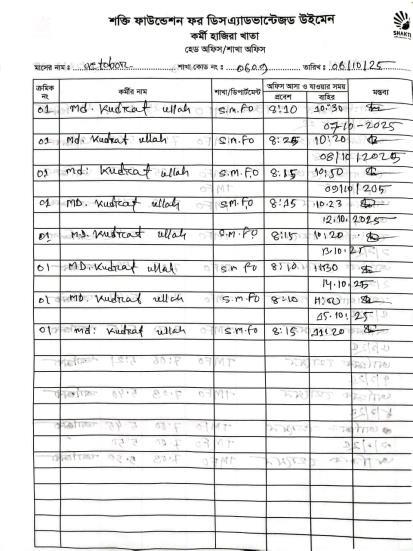 শক্তি ফাউন্ডেশন ফর ডিসএ্যাডভান্টেজড উইমেন
কর্মী হাজিরা খাতা
হেড অফিস/শাখা অফিস
SHAKTI
মাসের নাম : october শাখা কোড নং : 0609 তারিখ : 06/10/25
ক্রমিক নং কর্মীর নাম শাখা/ডিপার্টমেন্ট অফিস আসা ও যাওয়ার সময় মন্তব্য
প্রবেশ বাহির
01 Md. Kudrat ullah S.m.Fo 8:10 10:30
07-10-2025
01 Md. Kudrat ullah S.m.Fo 8:25 10:20
08/10/2025
01 Md: Kudrat ullah S.m.Fo 8:15 10:50
09/10/205
01 MD. Kudrat ullah S.m.Fo 8:15 10:23
12.10.2025
01 MD. Kudrat ullah S.m.Fo 8:15 10:20
13.10.25
01 MD. Kudrat ullah S.m Fo 8:10 11:30
14.10.25
01 MD. Kudrat ullah S.m Fo 8:10 11:00
15.10.25
01 md: Kudrat ullah S.m.Fo 8:15 11:20